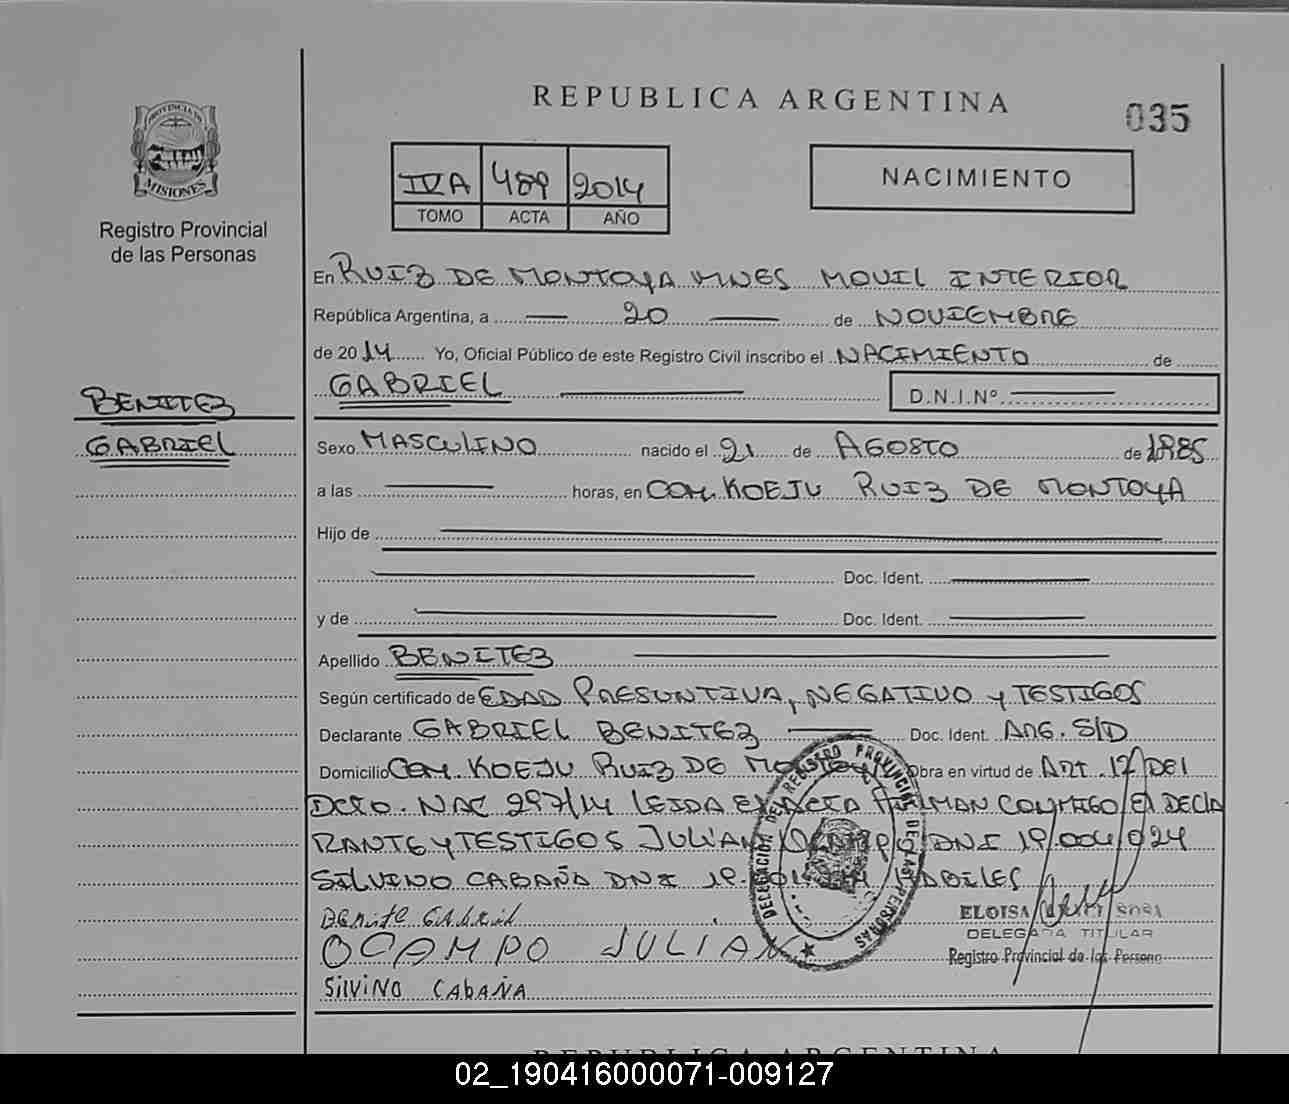 REPUBLICA ARGENTINA
035
PROVINCIA DE MISIONES
Registro Provincial
de las Personas
IVA 489 2014
TOMO ACTA AÑO
NACIMIENTO
En RUIZ DE MONTOYA MNES MOVIL INTERIOR
República Argentina, a 20 de NOVIEMBRE
de 2014 Yo, Oficial Público de este Registro Civil inscribo el NACIMIENTO de
GABRIEL D.N.I.Nº
BENITEZ
GABRIEL
Sexo MASCULINO nacido el 21 de AGOSTO de 1985
a las horas, en COM. KOEJU RUIZ DE MONTOYA
Hijo de
Doc. Ident.
y de Doc. Ident.
Apellido BENITEZ
Según certificado de EDAD PRESUNTIVA, NEGATIVO y TESTIGOS
Declarante GABRIEL BENITEZ Doc. Ident. ARG. S/D
Domicilio COM. KOEJU RUIZ DE MONTOYA Obra en virtud de ART. 12 DEL
DCTO. NAC 297/14 LEIDA EL ACTA FIRMAN CONMIGO EL DECLA
RANTE y TESTIGOS JULIAN OCAMPO DNI 19.004.024
SILVINO CABAÑA DNI 19. HABILES
DELEGACIÓN DEL REGISTRO PROVINCIAL DE LAS PERSONAS
Benite Gabriel
OCAMPO JULIAN
SilviNo CabañA
ELOISA
DELEGADA TITULAR
Registro Provincial de las Persona
REPUBLICA ARGENTINA
02_190416000071-009127